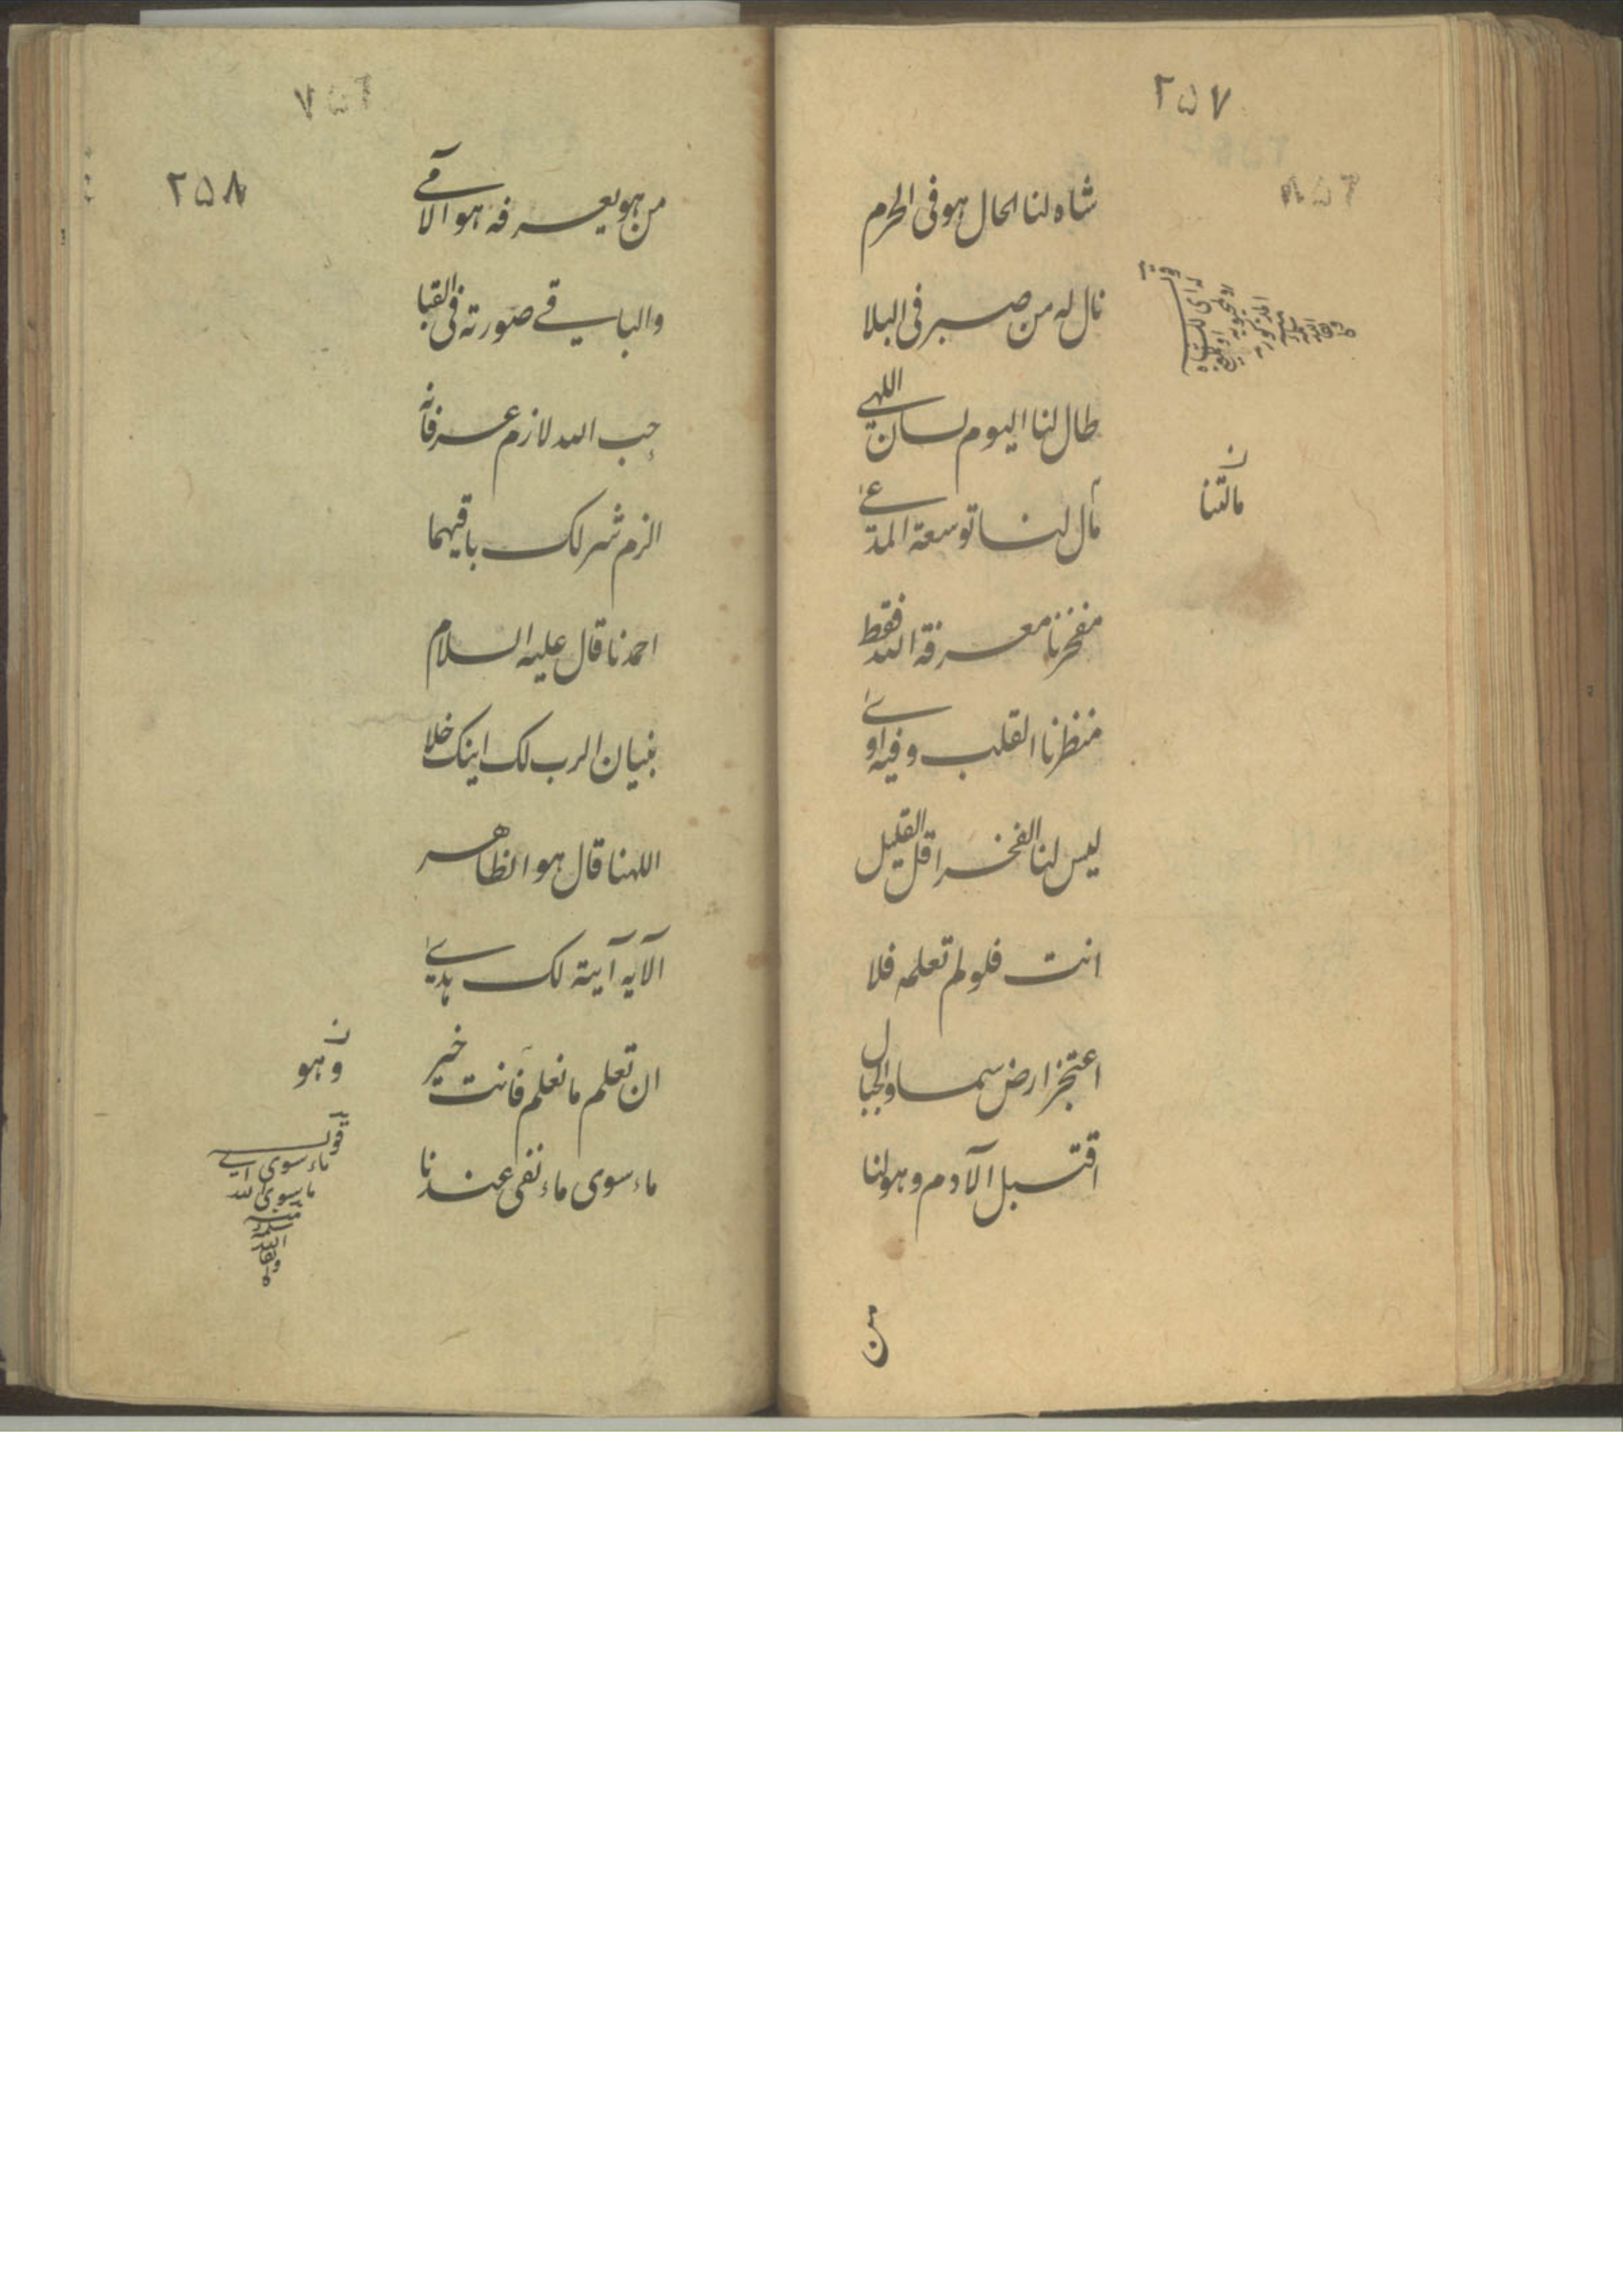 ۲۵۷
شاه لنا الحال هو فی الحرم
نال له من صبر فی البلا
طال لنا الیوم لسان اللهی
مال لنا توسعة المدعی
مفخرنا معرفة الله فقط
منظرنا القلب وفیه اوی
لیس لنا الفخر اقل القلیل
انت فلو لم تعلمه فلا
اعتجز ارض سما و الجبال
اقتبل الآدم وهو لنا
من
ن
مالتنا
له ای للشاه
المذکور
۲۵۸
من هو یعرفه هو الآمی
والباقی صورته فی القبا
حب الله لازم عرفانه
الزم شرلک باقیهما
احمدنا قال علیه السلام
بنیان الرب لک اینک خلا
اللهنا قال هو الظاهر
الآیه آیته لک یدی
ان تعلم ما نعلم فانت خیر
ماء سوی ماء نفی عندنا
ن
وهو
قوله
ماء سوی ای
ما سوی الله
منه
سلمه
الله
وبقا
ه